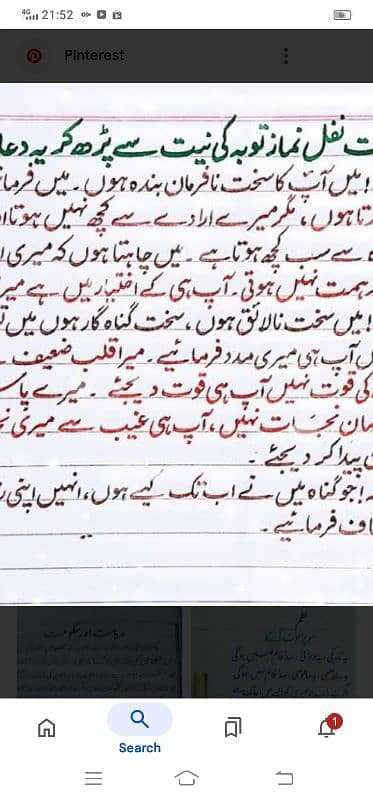 4G 21:52
Pinterest
ت نفل نماز توبہ کی نیت سے پڑھ کر یہ دعا
! میں آپ کا سخت نافرمان بندہ ہوں۔ میں فرما
رتا ہوں، مگر میرے ارادے سے کچھ نہیں ہوتا
ہ سے سب کچھ ہوتا ہے۔ میں چاہتا ہوں کہ میری
ہمت نہیں ہوتی۔ آپ ہی کے اختیار میں ہے میر
! میں سخت نالائق ہوں، سخت گناہ گار ہوں میں
ں آپ ہی میری مدد فرمائیے۔ میرا قلب ضعیف
کی قوت نہیں آپ ہی قوت دیجئے۔ میرے پاس
مان نجات نہیں، آپ ہی غیب سے میری نج
پیدا کر دیجئے۔
! جو گناہ میں نے اب تک کیے ہوں، انہیں اپنی
اف فرمائیے۔
ریاست اور حکومت
نظم
1
Search